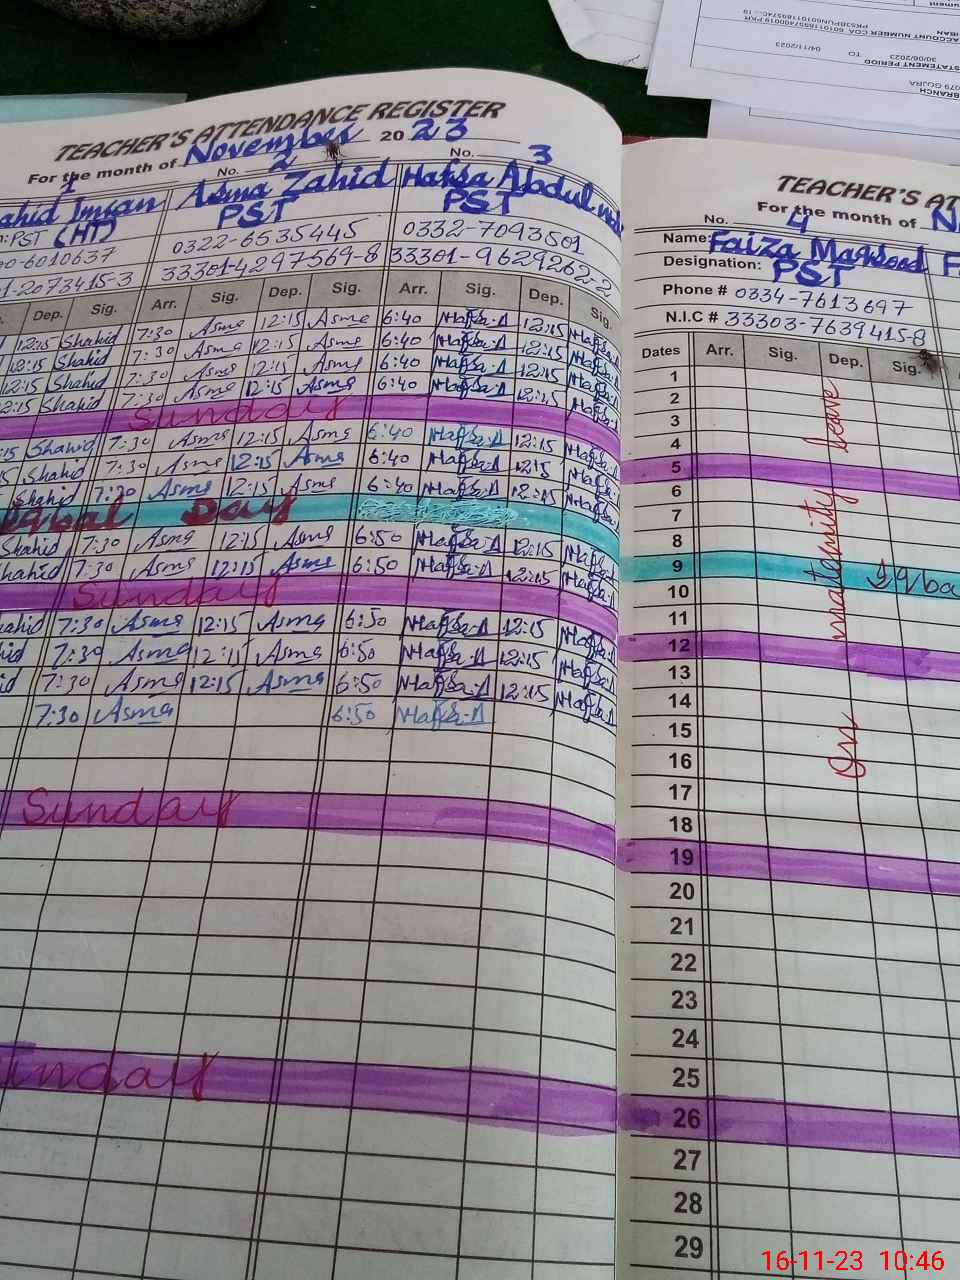 TEACHER'S ATTENDANCE REGISTER
For the month of November 2023
1 No. 2 No. 3
ahid Imran Asma Zahid Hafsa Abdul
PST (HT) PST PST
0-6010637 0322-6535445 0332-7093501
1-2073415-3 33301-4297569-8 33301-9629262-2
Dep. Sig. Arr. Sig. Dep. Sig. Arr. Sig. Dep. Sig.
12:15 Shahid 7:30 Asma 12:15 Asma 6:40 Hafsa.A 12:15 Hafsa
12:15 Shahid 7:30 Asma 12:15 Asma 6:40 Hafsa.A 12:15 Hafsa
12:15 Shahid 7:30 Asma 12:15 Asma 6:40 Hafsa.A 12:15 Hafsa
2:15 Shahid 7:30 Asma 12:15 Asma 6:40 Hafsa.A 12:15 Hafsa
Sunday
:15 Shahid 7:30 Asma 12:15 Asma 6:40 Hafsa.A 12:15 Hafsa
15 Shahid 7:30 Asma 12:15 Asma 6:40 Hafsa.A 12:15 Hafsa
Shahid 7:30 Asma 12:15 Asma 6:40 Hafsa.A 12:15 Hafsa
qbal Day
Shahid 7:30 Asma 12:15 Asma 6:50 Hafsa.A 12:15 Hafsa
hahid 7:30 Asma 12:15 Asma 6:50 Hafsa.A 12:15 Hafsa
Sunday
ahid 7:30 Asma 12:15 Asma 6:50 Hafsa.A 12:15 Hafsa
hid 7:30 Asma 12:15 Asma 6:50 Hafsa.A 12:15 Hafsa
id 7:30 Asma 12:15 Asma 6:50 Hafsa.A 12:15 Hafsa
7:30 Asma 6:50 Hafsa.A
Sunday
unday
TEACHER'S AT
For the month of N
No. 4
Name: Faiza Maqsood F
Designation: PST
Phone # 0334-7613697
N.I.C # 33303-7639415-8
Dates Arr. Sig. Dep. Sig. A
1
2
3
4
5
6
7
8
9 Iqba
10
11
12
13
14
15
16
17
18
19
20
21
22
23
24
25
26
27
28
29
On maternity leave
STATEMENT PERIOD
30/06/2023 TO 04/11/2023
BRANCH
079 GOJRA
ACCOUNT NUMBER
IBAN
16-11-23 10:46